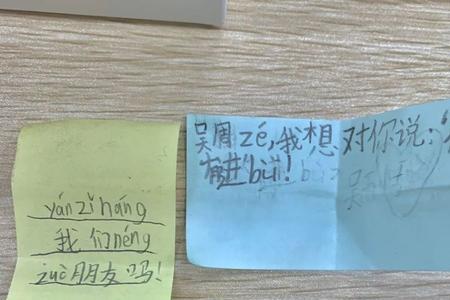 yánzǐháng
我们néng
zuò朋友吗!
吴周zé,我想对你说:“
有进bù!